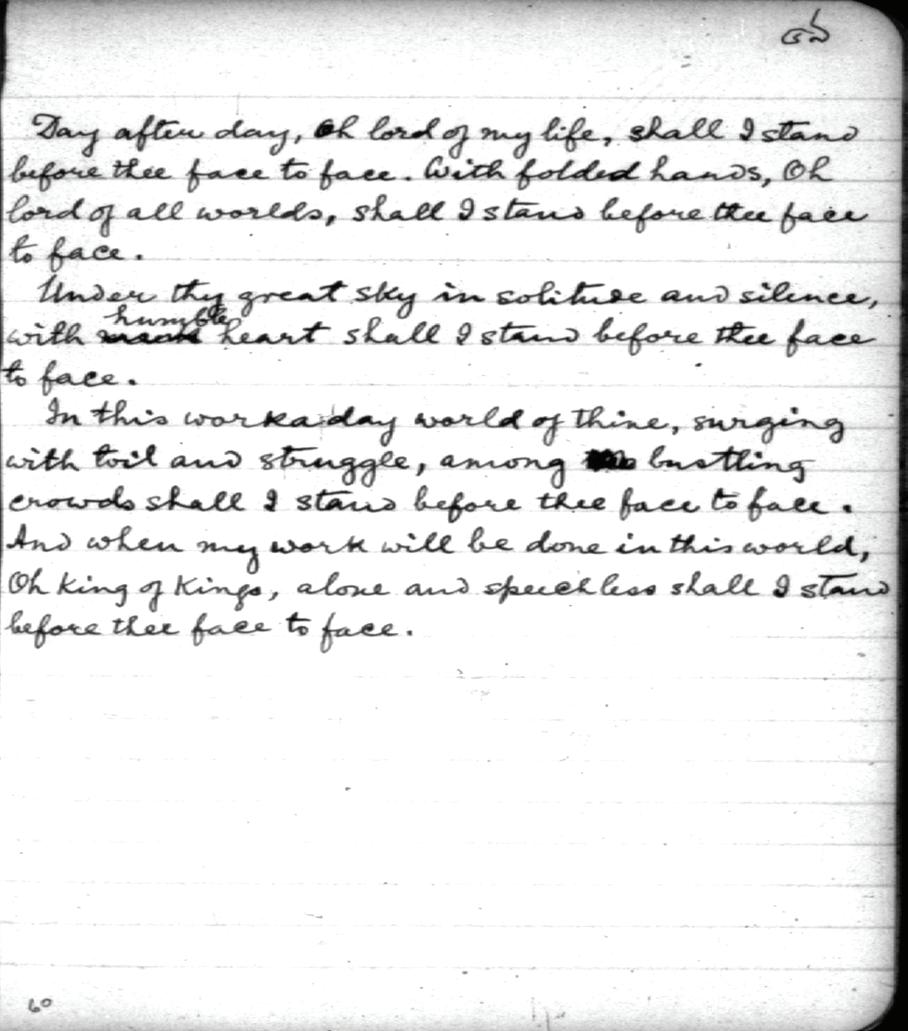 ৫৯
Day after day, Oh lord of my life, shall I stand
before thee face to face. With folded hands, Oh
lord of all worlds, shall I stand before thee face
to face.
Under thy great sky in solitude and silence,
humble
with heart shall I stand before thee face
to face.
In this workaday world of thine, surging
with toil and struggle, among bustling
crowds shall I stand before thee face to face.
And when my work will be done in this world,
Oh King of Kings, alone and speechless shall I stand
before thee face to face.
60